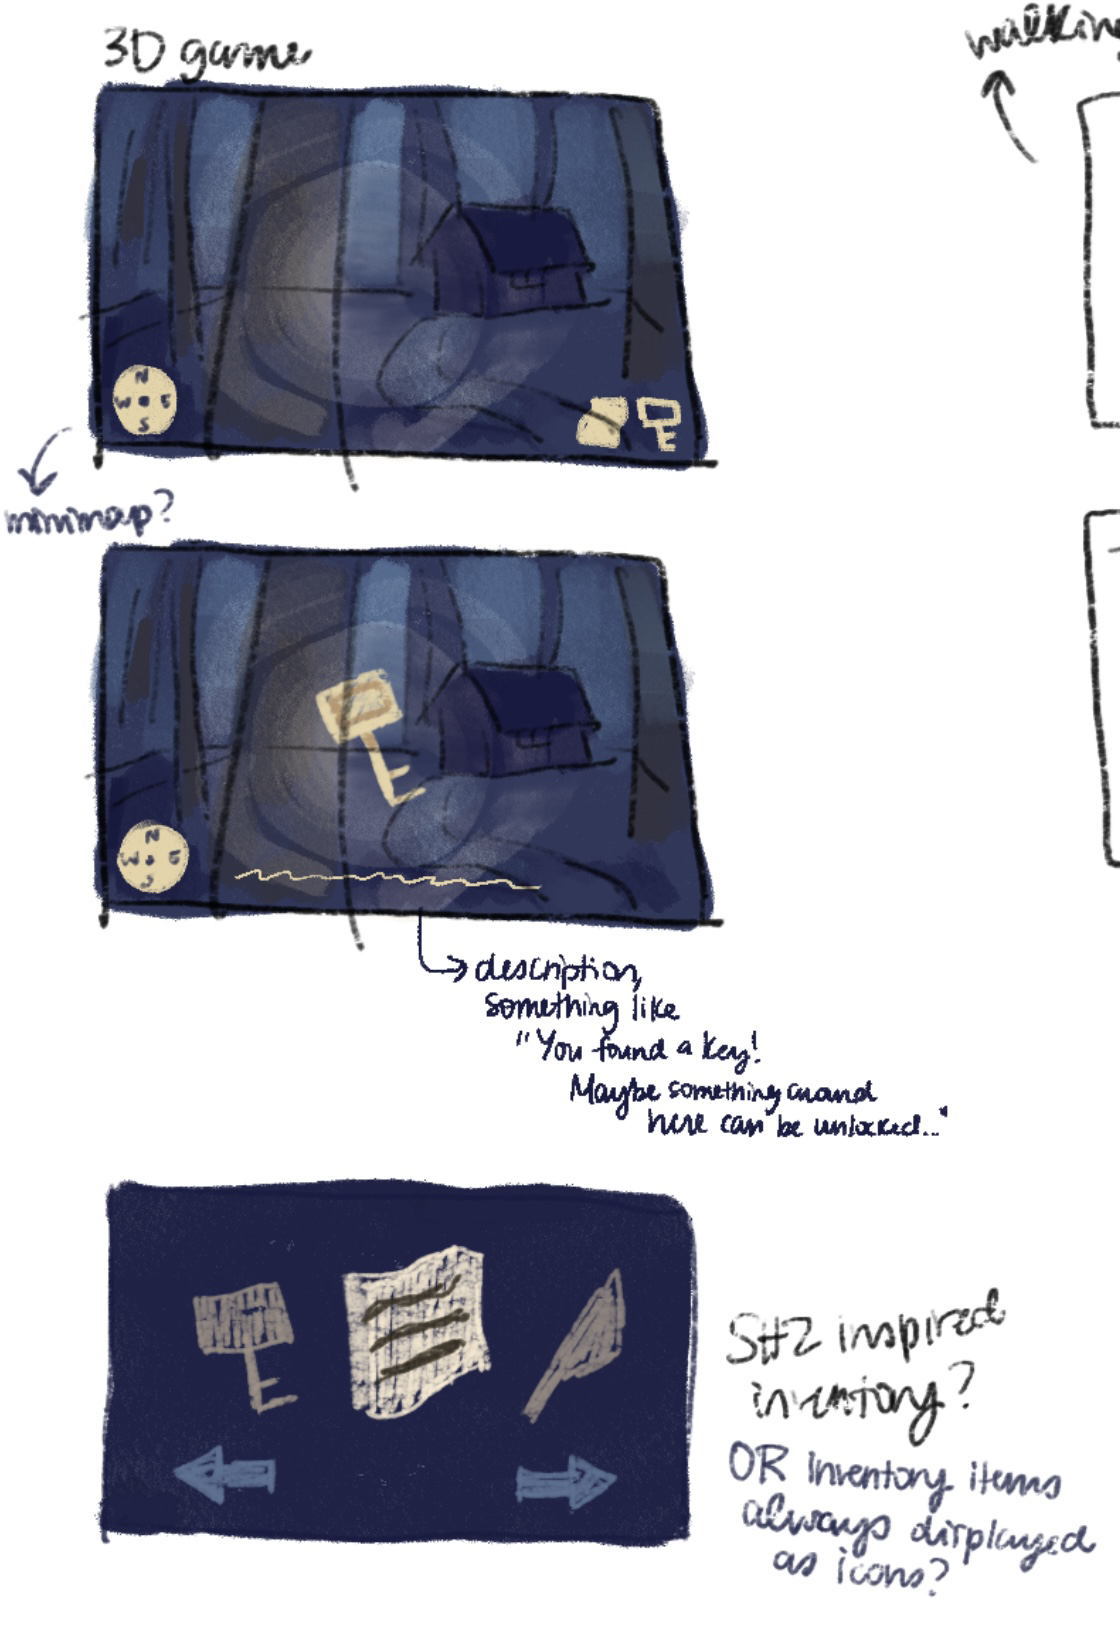 3D game
walking
N
W E
S
minimap?
N
W E
S
description,
something like
"You found a key!
Maybe something around
here can be unlocked..."
SH2 inspired
inventory?
OR inventory items
always displayed
as icons?